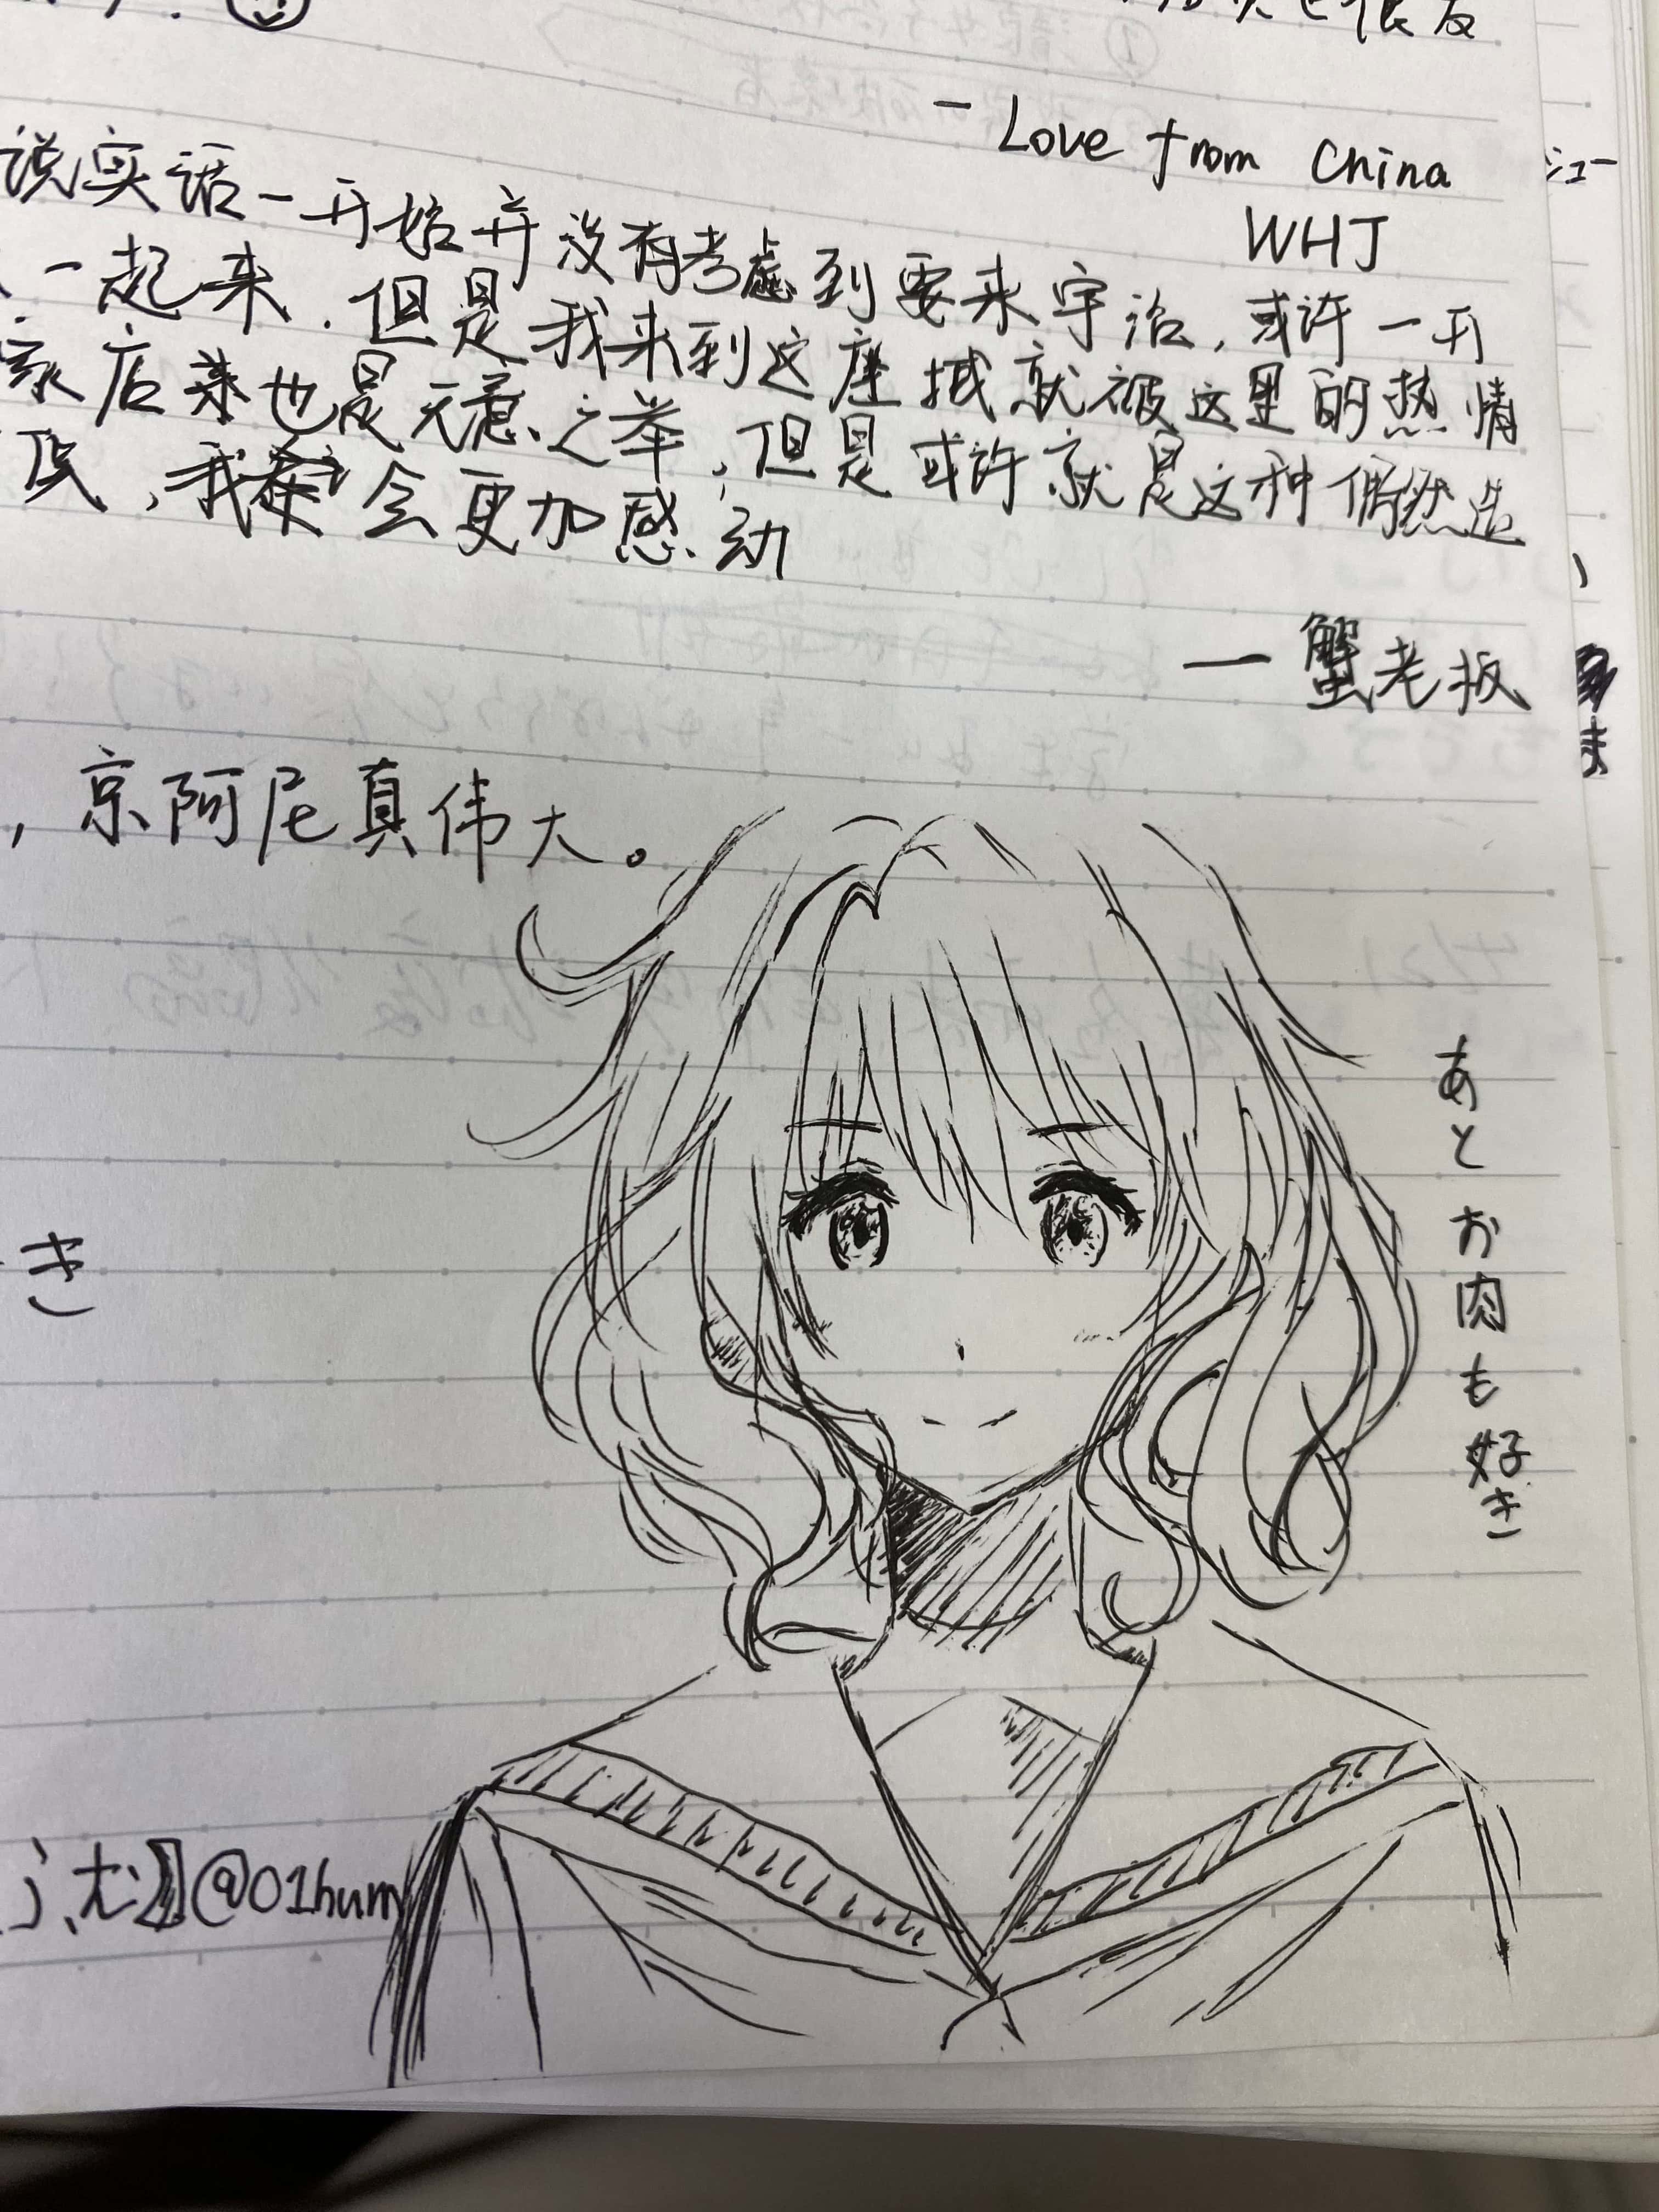 也很友
- Love from China
WHJ
说实话一开始并没有考虑到要来宇治,或许一开
一起来.但是我来到这座城就被这里的热情
家店来也是无意之举,但是或许就是这种偶然造
我会更加感动
一蟹老板
,京阿尼真伟大。
あとお肉も好き
き
@01hum